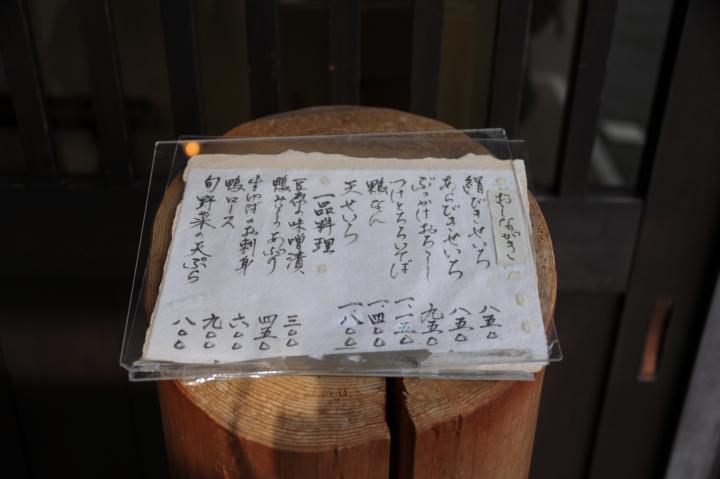 おしながき
絹びきせいろ 八五〇
あらびきせいろ 八五〇
ぶっかけおろし 九五〇
つけとろろいそば 一、一五〇
鴨なん 一、四〇〇
天せいろ 一、八〇〇
一品料理
豆腐の味噌漬 三〇〇
鴨みそあぶり 四五〇
生ゆばのお刺身 六〇〇
鴨ロース 九〇〇
旬野菜の天ぷら 八〇〇